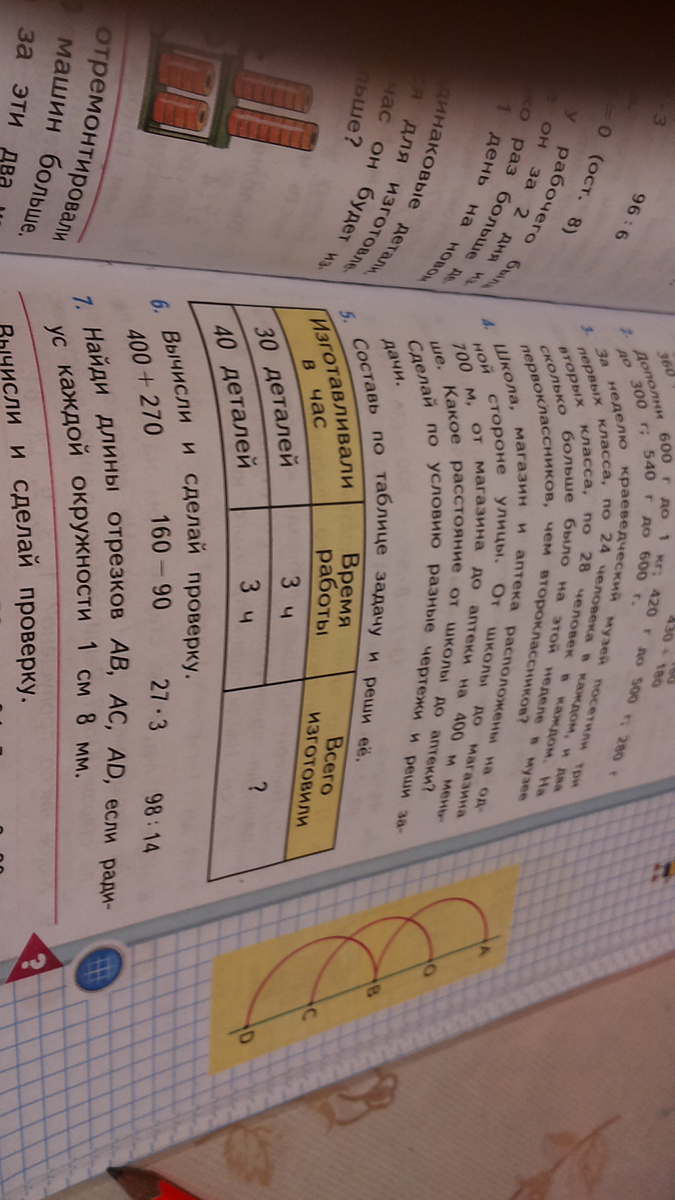 · 3
96 : 6
= 0 (ост. 8)
у рабочего
он за 2 дня был
ко раз больше из
1 день на новом
динаковые детали.
ся для изготовле-
час он будет из-
льше?
отремонтировали
машин больше.
за эти два
360
430 + 180
2. Дополни 600 г до 1 кг; 420 г до 500 г; 280 г
до 300 г; 540 г до 600 г.
3. За неделю краеведческий музей посетили три
первых класса, по 24 человека в каждом, и два
вторых класса, по 28 человек в каждом. На
сколько больше было на этой неделе в музее
первоклассников, чем второклассников?
4. Школа, магазин и аптека расположены на од-
ной стороне улицы. От школы до магазина
700 м, от магазина до аптеки на 400 м мень-
ше. Какое расстояние от школы до аптеки?
Сделай по условию разные чертежи и реши за-
дачи.
5. Составь по таблице задачу и реши её.
Изготавливали в час
Время работы
Всего изготовили
30 деталей
3 ч
?
40 деталей
3 ч
6. Вычисли и сделай проверку.
400 + 270 160 − 90 27 · 3 98 : 14
7. Найди длины отрезков AB, AC, AD, если ради-
ус каждой окружности 1 см 8 мм.
A
O
B
C
D
?
Вычисли и сделай проверку.